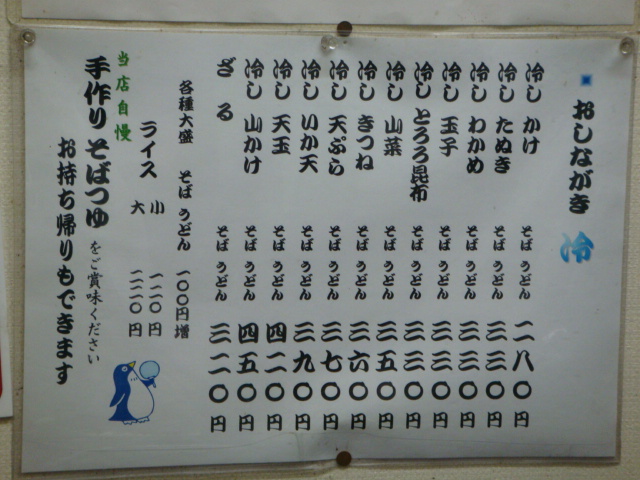 おしながき 冷
冷し かけ そば うどん 二八〇円
冷し たぬき そば うどん 三三〇円
冷し わかめ そば うどん 三三〇円
冷し 玉子 そば うどん 三三〇円
冷し とろろ昆布 そば うどん 三三〇円
冷し 山菜 そば うどん 三五〇円
冷し きつね そば うどん 三六〇円
冷し 天ぷら そば うどん 三七〇円
冷し いか天 そば うどん 三九〇円
冷し 天玉 そば うどん 四二〇円
冷し 山かけ そば うどん 四五〇円
ざる そば うどん 三二〇円
各種大盛 そば うどん 一〇〇円増
ライス 小 一二〇円
大 二二〇円
当店自慢
手作りそばつゆをご賞味ください
お持ち帰りもできます